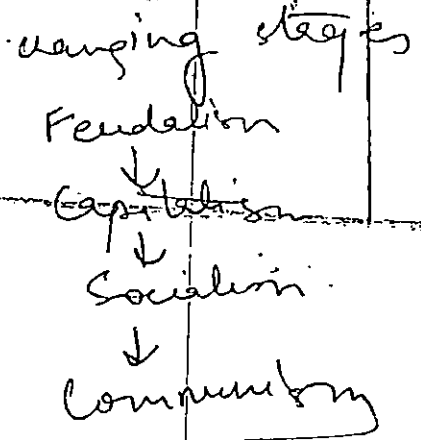 changing stages
Feudalism
↓
Capitalism
↓
Socialism.
↓
Communism